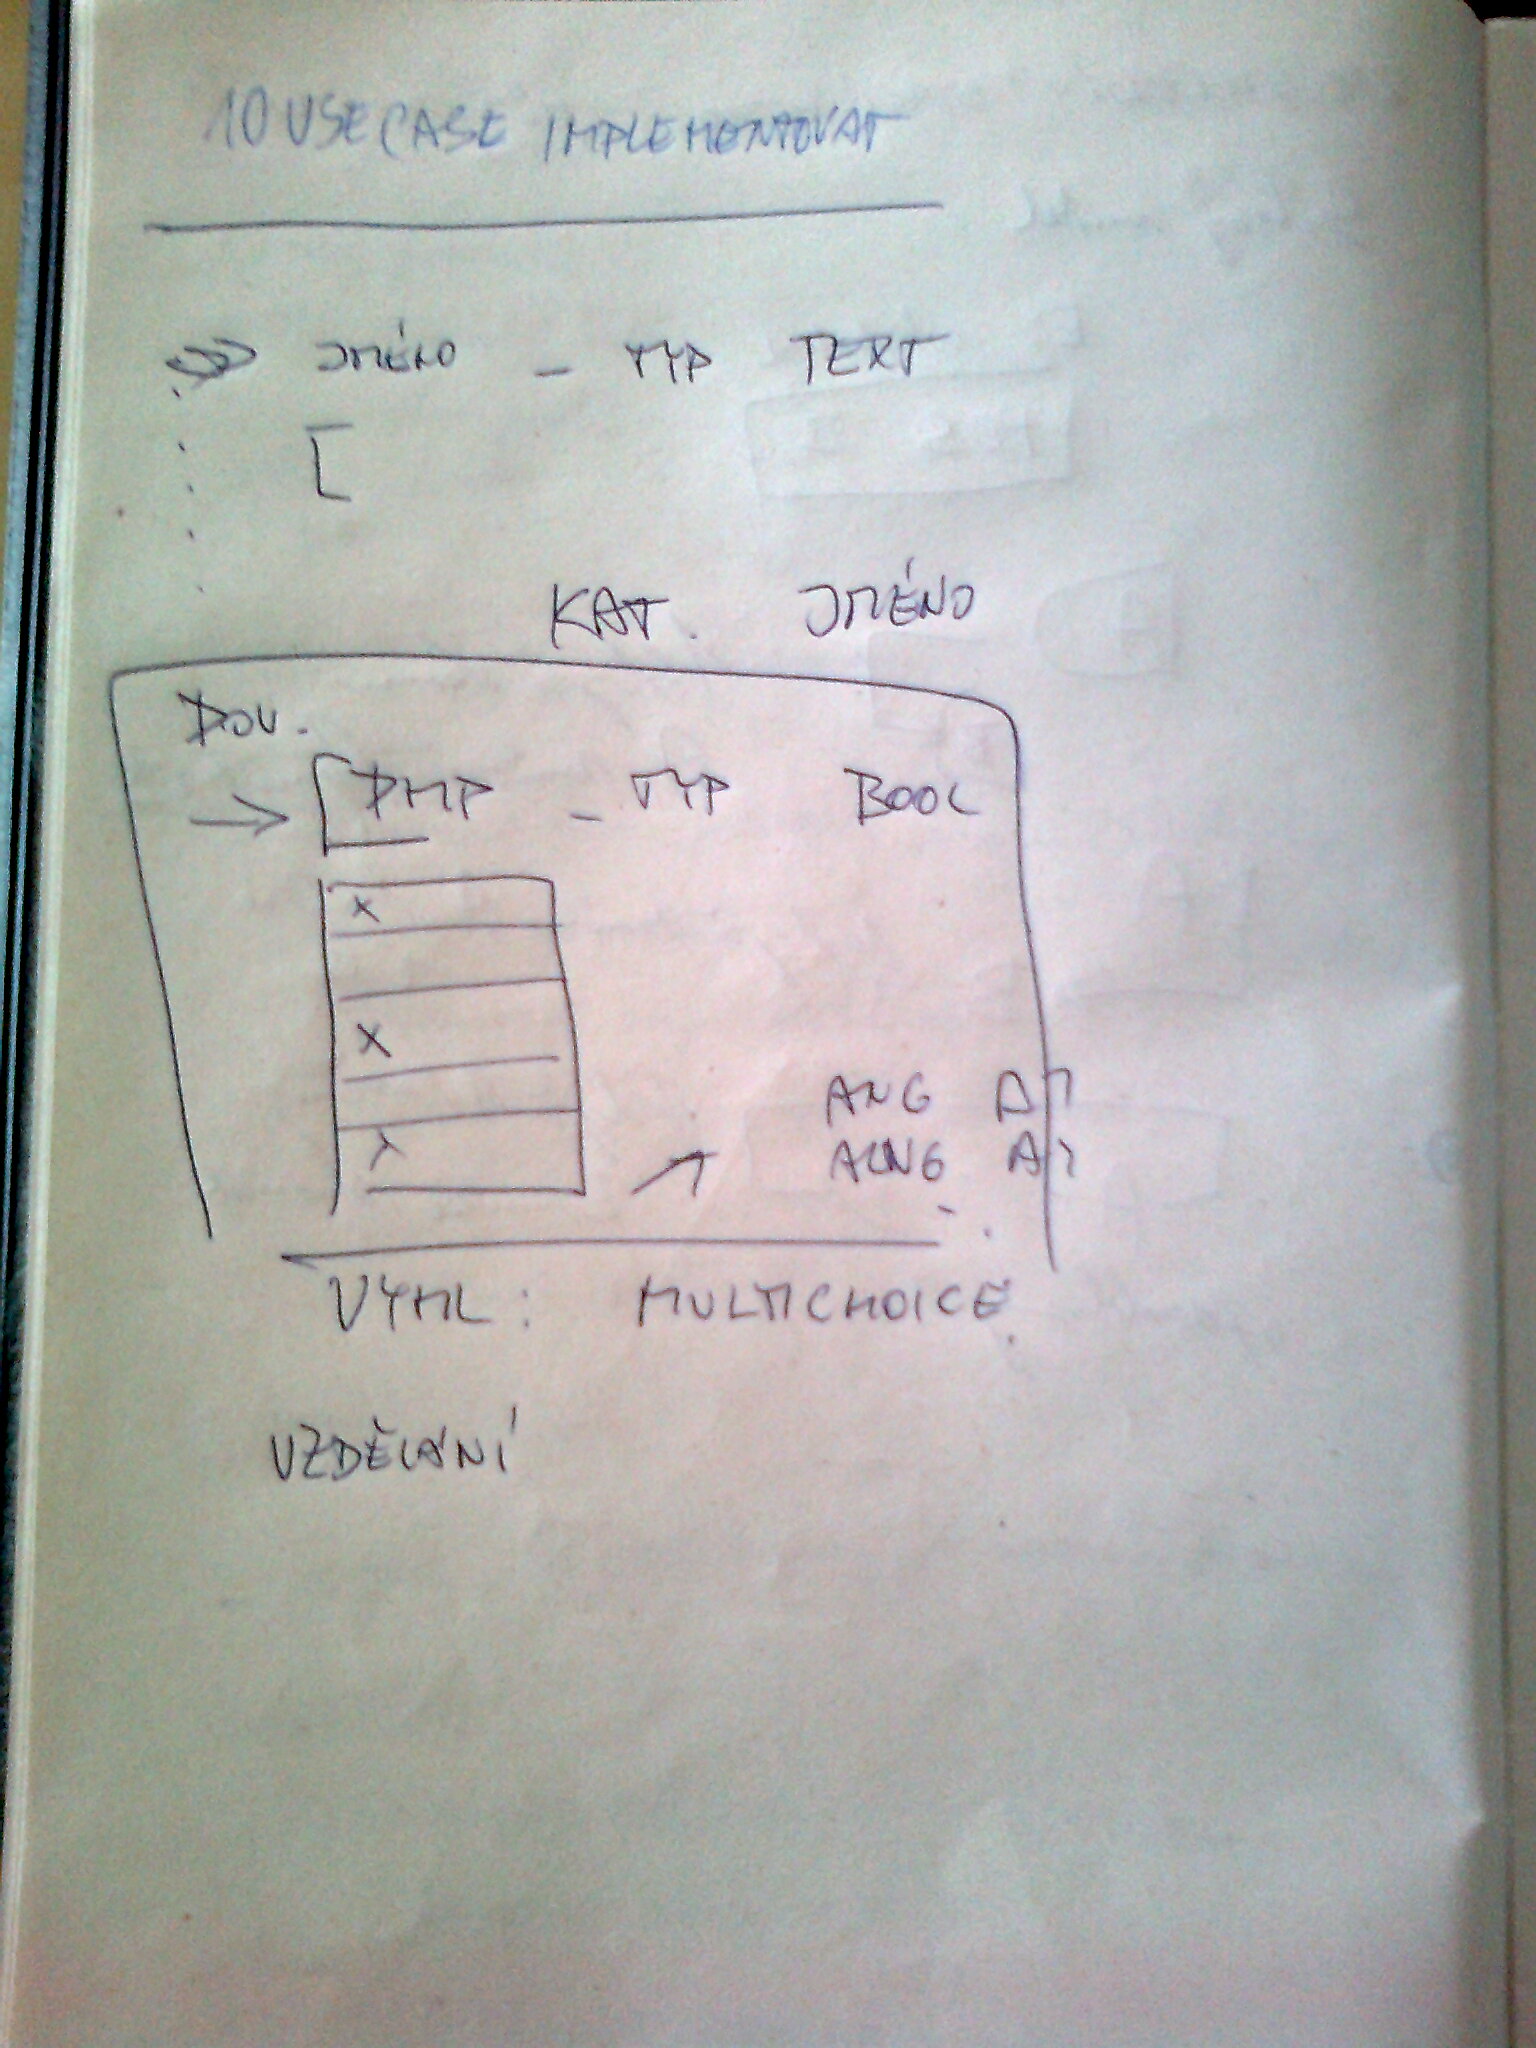 10 USECASE IMPLEMENTOVAT
JMÉNO - TYP TEXT
KAT. JMÉNO
DOV.
PHP - TYP BOOL
X
X
ANG
VYHL: MULTICHOICE
VZDĚLÁNÍ